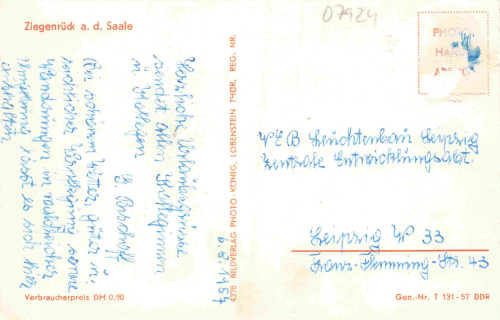 Ziegenrück a. d. Saale
07924
PHOTO
HAND
Herzliche Urlaubsgrüsse
sendet allen Kolleginnen
u. Kollegen
Bei schönem Wetter, guter u.
Verpflegung sowie
Wanderungen in
Umgebung lässt es sich hier
VEB Leuchtenbau Leipzig
Zentrale Entwicklungsabt.
Leipzig W 33
Franz-Flemming-Str. 43
4376 BILDVERLAG PHOTO-KÖNIG, LOBENSTEIN THÜR. REG. NR.
Verbraucherpreis DM 0,20
Gen.-Nr. T 131-57 DDR